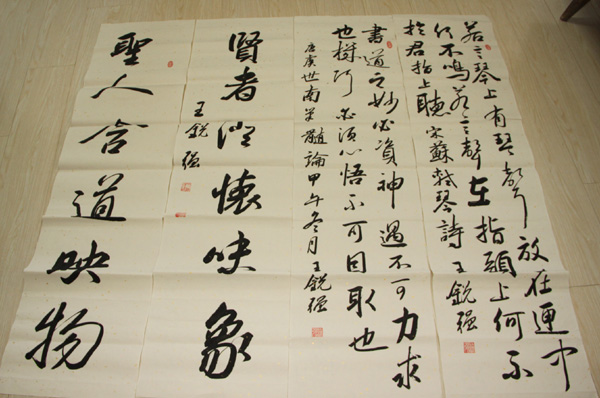 若言琴上有琴聲放在匣中
何不鳴若言聲在指頭上何不
於君指上聽宋蘇軾琴詩王鋭强
書道之妙必資神遇不可力求
也機巧必須心悟不可目取也
唐虞世南筆髓論甲午冬月王鋭强
賢者澄懷味象
王鋭强
聖人含道映物